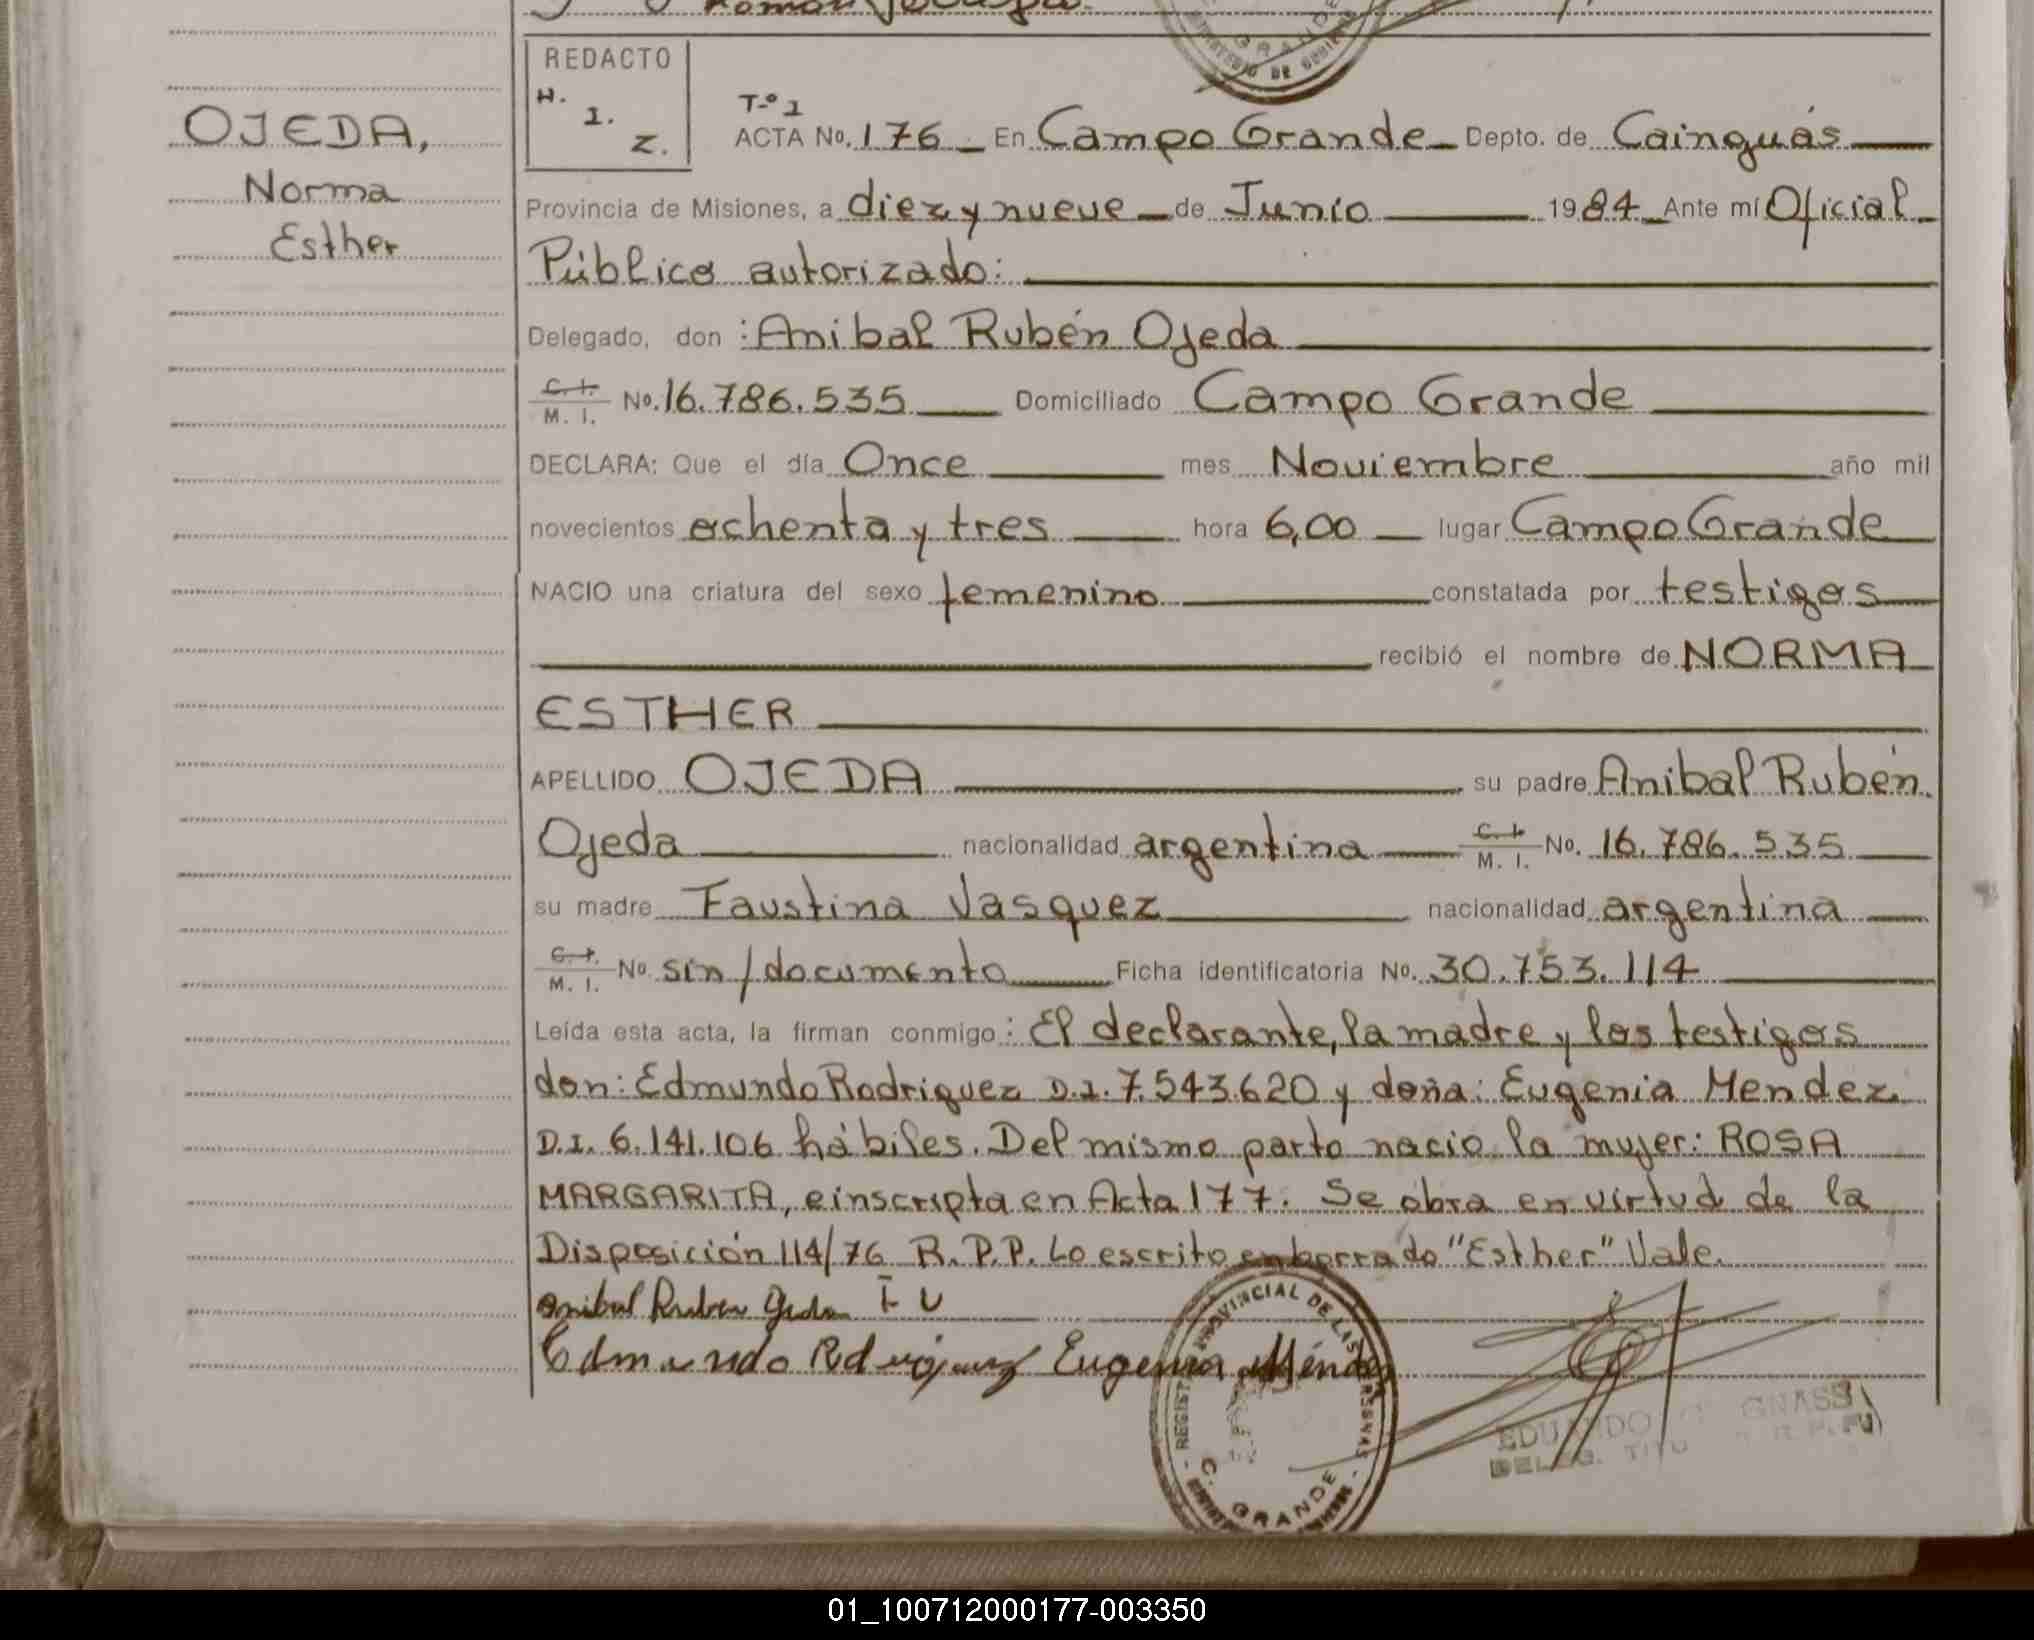 REDACTO
H. I. Z.
OJEDA,
Norma
Esther
T.º 1
ACTA No. 176 En Campo Grande Depto. de Cainguás
Provincia de Misiones, a diez y nueve de Junio 1984 Ante mí Oficial
Público autorizado:
Delegado, don : Anibal Rubén Ojeda
C. I. M. I. No. 16.786.535 Domiciliado Campo Grande
DECLARA: Que el día Once mes Noviembre año mil
novecientos ochenta y tres hora 6,00 lugar Campo Grande
NACIO una criatura del sexo femenino constatada por testigos
recibió el nombre de NORMA
ESTHER
APELLIDO OJEDA su padre Anibal Rubén
Ojeda nacionalidad argentina C. I. M. I. No. 16.786.535
su madre Faustina Vasquez nacionalidad argentina
C. I. M. I. No. sin/documento Ficha identificatoria No. 30.753.114
Leída esta acta, la firman conmigo: El declarante, la madre y los testigos
don: Edmundo Rodriguez D.I. 7.543.620 y doña: Eugenia Mendez
D.I. 6.141.106 hábiles. Del mismo parto nacio la mujer: ROSA
MARGARITA, e inscripta en Acta 177. Se obra en virtud de la
Disposición 114/76 R.P.P. Lo escrito enborrado "Esther" Vale.
Anibal Ruben Ojeda
Edmundo Eugenia Méndez
REGISTRO PROVINCIAL DE LAS PERSONAS
C. GRANDE
EDUARDO
DELEG. TITU
01_100712000177-003350